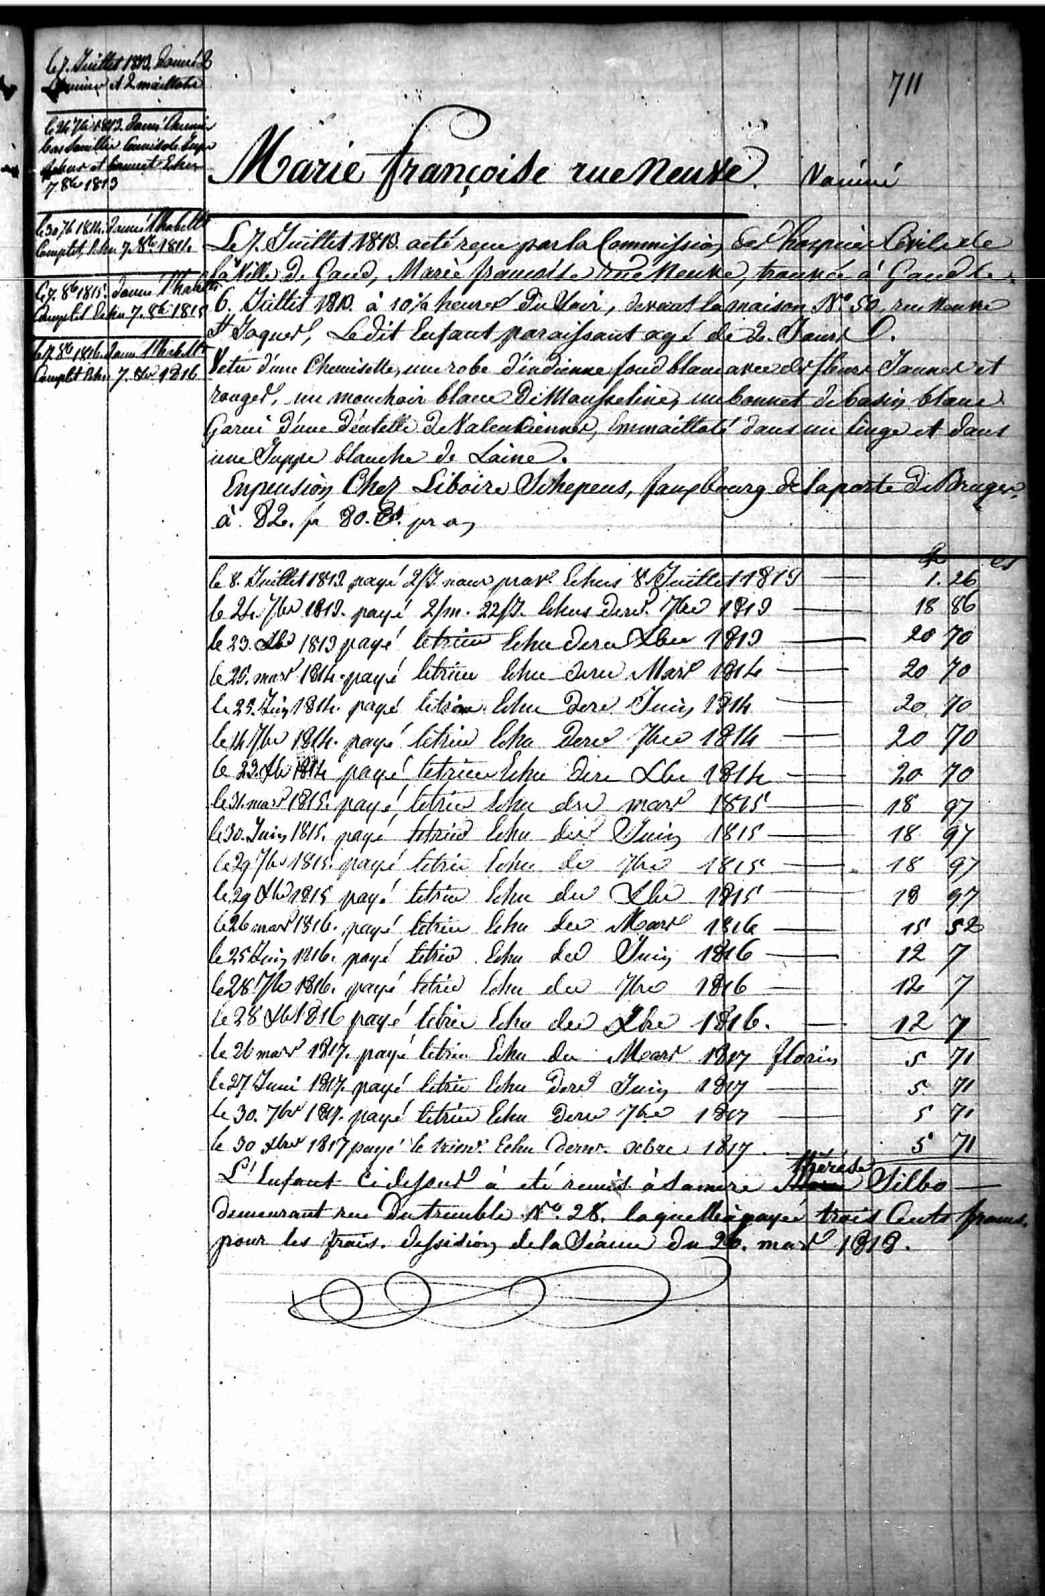 711
Marie françoise rue Neuve. Vacciné
le 7. Juillet 1813. Donné 2
et 2 maillots
le 24 7bre 1813. Donné
Camisole Jupe
et bonnet Echu
7 8bre 1813
le 30 7b 1814. Donné 1 habillt
Complet, Echu 7. 8bre 1814
le 7. 8bre 1815. Donné 1 habillt
Complet Echu 7. 8bre 1815
le 7. 8bre 1816. Donné 1 habillt
Complet Echu 7. 8bre 1816
Le 7. Juillet 1813. acté reçu par la Commission des hospices Civils de
la Ville de Gand, Marie françoise rue Neuve, trouvée à Gand le
6. Juillet 1813. à 10½ heures du Soir, devant la maison No. 50, rue neuve
St Jaques, Le dit Enfant paraissant agé de 2. Jours
Vetu d'une Chemisette, une robe d'indienne fond blanc avec des fleurs Jaunes et
rouges, un mouchoir blanc de Mousseline, un bonnet de basin blanc
Garni d'une Dentelle de Valenciennes, Emmailloté dans un linge et dans
une Juppe blanche de Laine.
En pension Chez Liboire Schepens, fauxbourg de la porte de Bruges
à 82. fr 80. Cs. pr an
fr cs
le 8. Juillet 1813 payé 2/J. nour prov. Echus 8 Juillet 1813 — 1. 26
le 24. 7bre 1813. payé 2/m. 22/J. Echus derer. 7bre 1813 — 18 86
le 23. Xbre 1813 payé le trim Echu derer Xbre 1813 — 20 70
le 25. mars 1814. payé le trim Echu derer Mars 1814 — 20 70
le 23. Juin 1814. payé le trim. Echu derer Juin 1814 — 20 70
le 14 7bre 1814. payé le trim Echu derer 7bre 1814 — 20 70
le 23. Xbre 1814 payé le trim Echu derer Xbre 1814 — 20 70
le 31. mars 1815. payé le trim Echu der mars 1815 — 18 97
le 30. Juin 1815. payé le trim Echu der Juin 1815 — 18 97
le 29 7bre 1815. payé le trim Echu de 7bre 1815 — 18 97
le 29 Xbre 1815 payé le trim Echu der Xbre 1815 — 18 97
le 26 mars 1816. payé le trim Echu der Mars 1816 — 15 52
le 25 Juin 1816. payé le trim Echu der Juin 1816 — 12 7
le 28 7bre 1816. payé le trim Echu der 7bre 1816 — 12 7
le 28 Xbre 1816 payé le trim Echu der Xbre 1816. — 12 7
le 26 mars 1817. payé le trim Echu der Mars 1817 florins 5 71
le 27 Juni 1817. payé le trim Echu derer Juin 1817 — 5 71
le 30. 7bre 1817. payé le trim Echu derer 7bre 1817 — 5 71
le 30 Xbre 1817 payé le trimr. Echu dernr. Xbre 1817 . 5 71
L'Enfant Ci dessus à été remis à sa mere thérèse Silbo —
demeurant rue du tremble No. 28. laquelle à payée trois Cents francs
pour les frais. dessision de la Séance du 26. mars 1818.